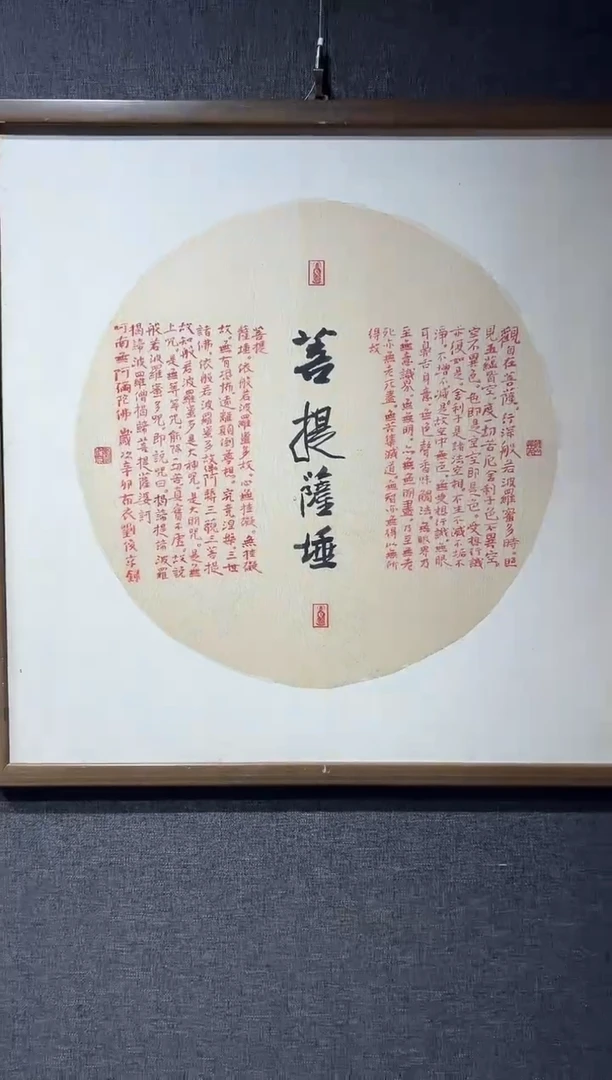 觀自在菩薩。行深般若波羅蜜多時。照
見五蘊皆空。度一切苦厄舍利子色不異空
空不異色。色即是空空即是色。受想行識
亦復如是。舍利子是諸法空相不生不滅不垢不
淨。不增不減。是故空中無色。無受想行識無眼
耳鼻舌身意。無色聲香味觸法。無眼界乃
至無意識界。無無明。亦無無明盡。乃至無老
死亦無老死盡。無苦集滅道。無智亦無得以無所
得故
菩提薩埵
菩提
薩埵。依般若波羅蜜多故。心無罣礙。無罣礙
故。無有恐怖遠離顛倒夢想。究竟涅槃三世
諸佛。依般若波羅蜜多故得阿耨三藐三菩提
故知般若波羅蜜多是大神咒。是大明咒。是無
上咒是無等等咒。能除一切苦真實不虛。故說
般若波羅蜜多咒。即說咒曰揭諦揭諦波羅
揭諦波羅僧揭諦菩提薩婆訶
南無阿彌陀佛 歲次辛卯 劉俊京錄